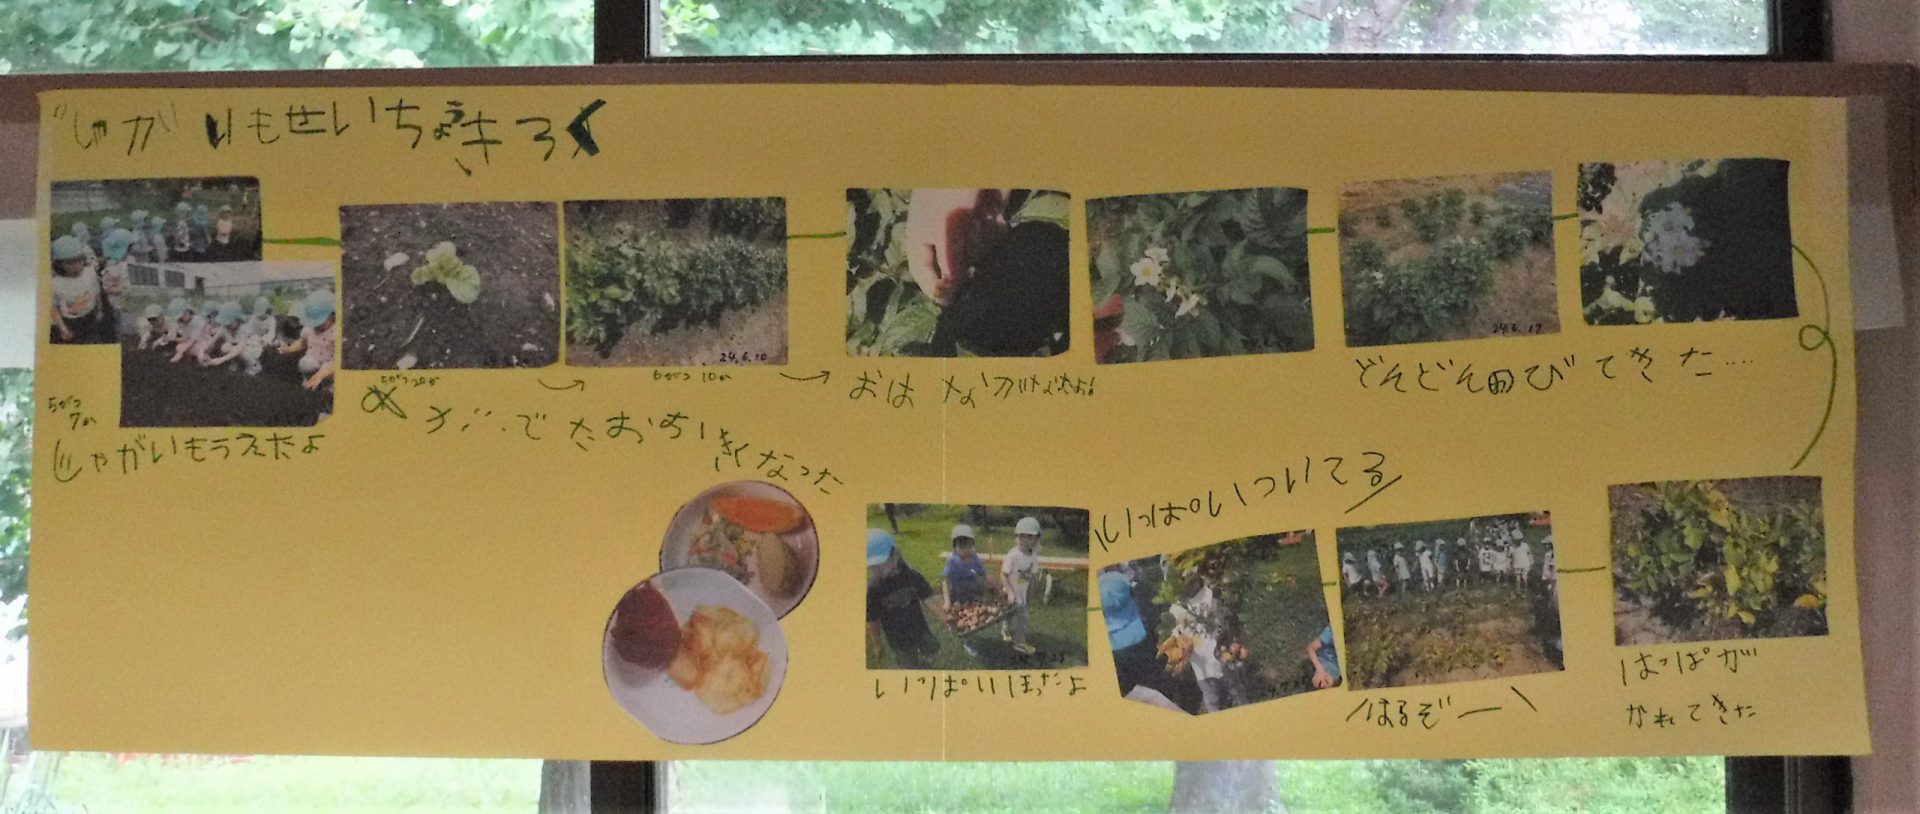 じゃがいもせいちょうきろく
5がつ
7か
じゃがいもうえたよ
5がつ20か
めがでた
おおきくなった
24.6.10
6がつ10か
おはながさいたよ!
24.6.17
どんどんのびてきた....
はっぱが
かれてきた
ほるぞー
いっぱいついてる
いっぱいほったよ